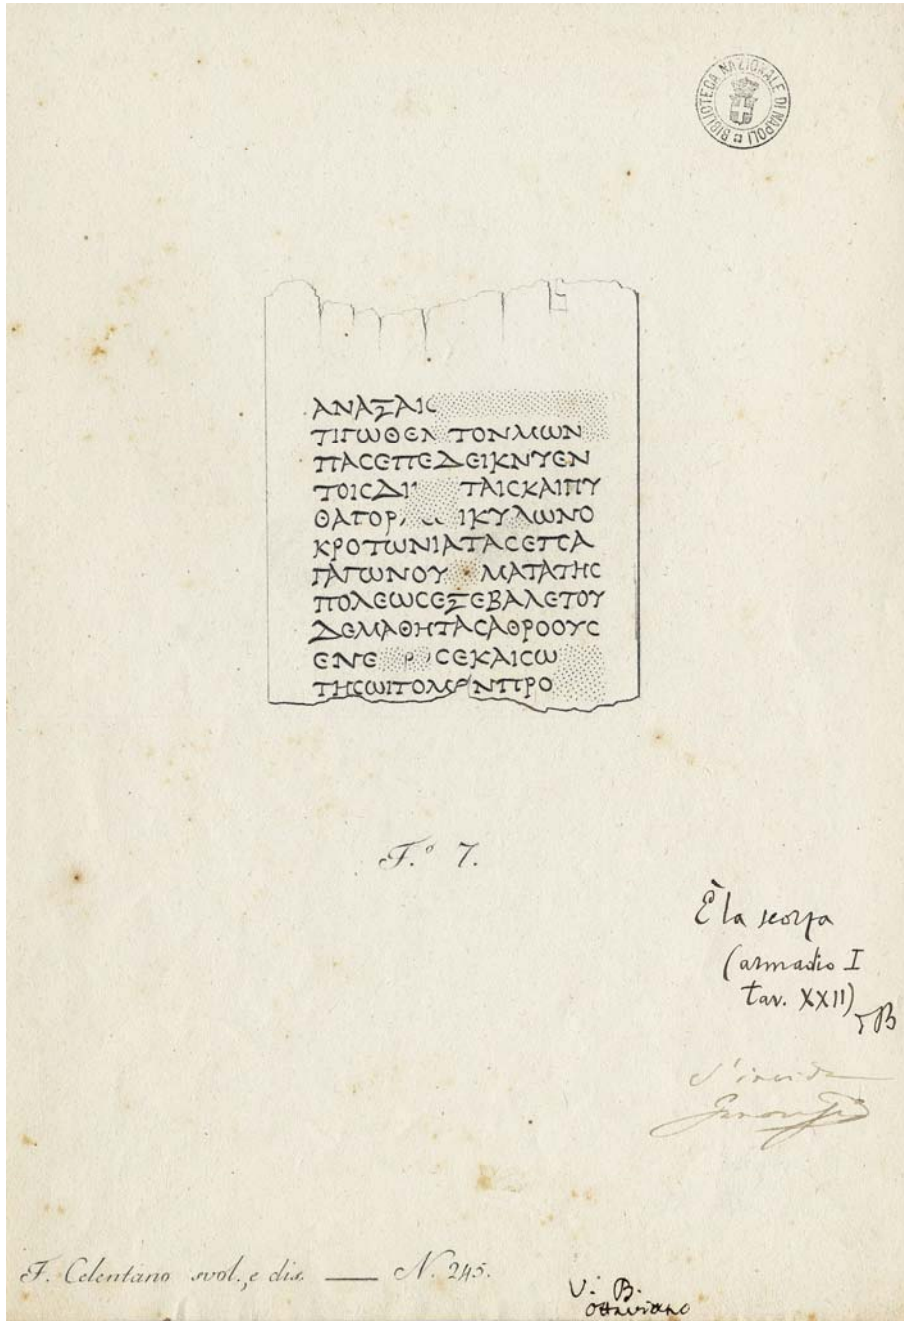 BIBLIOTECA NAZIONALE DI NAPOLI
ΑΝΑΞΑΙϹ
ΤΟΝΜΩΝ
ΠΑϹΕΠΕΔΕΙΚΝΥΕΝ
ΤΟΙϹΔΙ ΤΑΙϹΚΑΙΠΥ
ΘΑΓΟΡ ΙΚΥΛΩΝΟ
ΚΡΟΤΩΝΙΑΤΑϹΕΠΕΑ
ΓΑΓΩΝΟΥ ΜΑΤΑΤΗϹ
ΠΟΛΕΩϹΕΞΕΒΑΛΕΤΟΥ
ΔΕΜΑΘΗΤΑϹΑΘΡΟΟΥϹ
ΕΝΕ ϹΕΚΑΙϹΩ
ΤΗϹΩΙΤΟΜ ΝΠΡΟ
F.º 7.
È la scorza
(armadio I
tav. XXII)
F. Celentano svol. e dis. — N. 245.
V. B.
Ottaviano